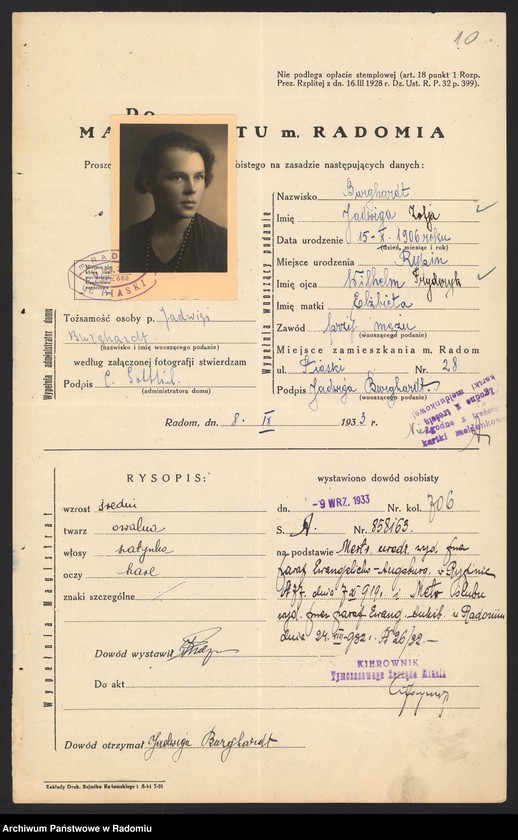 10
Nie podlega opłacie stemplowej (art. 18 punkt 1 Rozp.
Prez. Rzplitej z dn. 16.III 1928 r. Dz. Ust. R. P. 32 p. 399).
Do
MA TU m. RADOMIA
Prosz bistego na zasadzie następujących danych:
Wypełnia wnoszący podanie
Nazwisko Burghardt
Imię Jadwiga Zofja
Data urodzenia 15-X-1906 roku
(dzień, miesiąc i rok)
Miejsce urodzenia Rypin
Imię ojca Wilhelm Frydryk
Imię matki Elżbieta
Zawód przy mężu
(wnoszącego podanie)
Miejsce zamieszkania m. Radom
ul. Piaski Nr. 28
Podpis Jadwiga Burghardt.
(wnoszącego podanie)
Wypełnia administrator domu
RAD
PIASKI
Tożsamość osoby p. Jadwigi
Burghardt
(nazwisko i imię wnoszącego podanie)
według załączonej fotografji stwierdzam
Podpis
(administratora domu)
Radom, dn. 8. IX 1933 r.
Zgodne z treścią
kartki meldunkowej
Zgodne z treścią
kartki meldunkowej
Wypełnia Magistrat
RYSOPIS:
wzrost średni
twarz owalna
włosy szatynka
oczy
znaki szczególne
wystawiono dowód osobisty
dn. -9 WRZ. 1933 Nr. kol. 706
S. A. Nr. 858163.
na podstawie Metr. urodz. wyd. prez
paraf Ewangelicko-Augsburs. w Rypinie
dnia 7.XI 919 r. i Metr. Ślubu
wyd. przez paraf Ewang. w Radomiu
dnia 24.VIII-932 r. № 26/32.—
Dowód wystawił
Do akt
KIEROWNIK
Tymczasowego Zarządu Miasta
Dowód otrzymał Jadwiga Burghardt
Zakłady Druk. Sejmiku Radomskiego i S-ki 7-31
Archiwum Państwowe w Radomiu